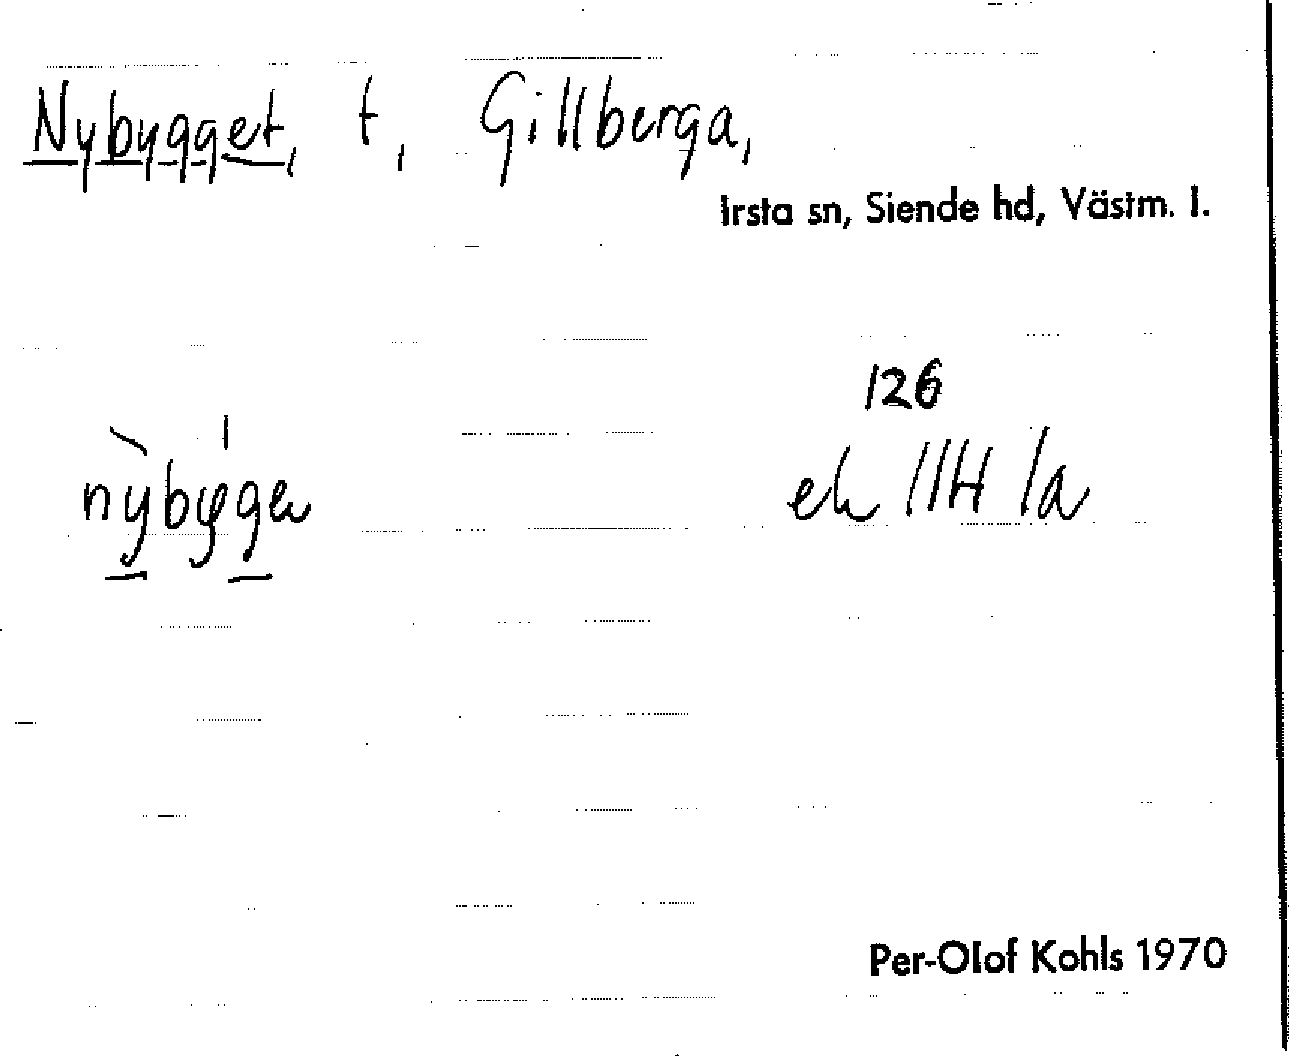 Nybygget, t, Gillberga,
Irsta sn, Siende hd, Västm. l.
126
nybyge
ek 11H 1a
Per-Olof Kohls 1970